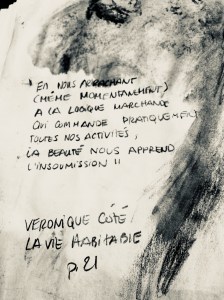 En nous arrachant
(même momentanément)
à la logique marchande
qui commande pratiquement
toutes nos activités,
la beauté nous apprend
l'insoumission !!
VÉRONIQUE CÔTÉ
LA VIE HABITABLE
p. 21